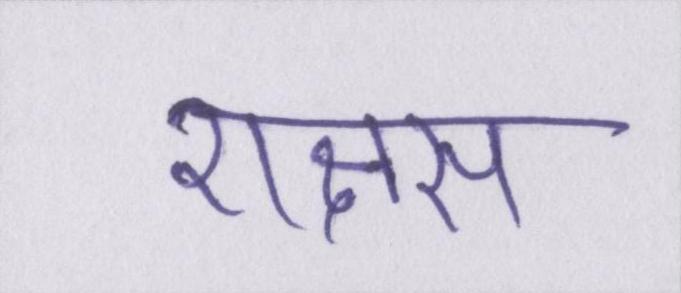 राक्षस